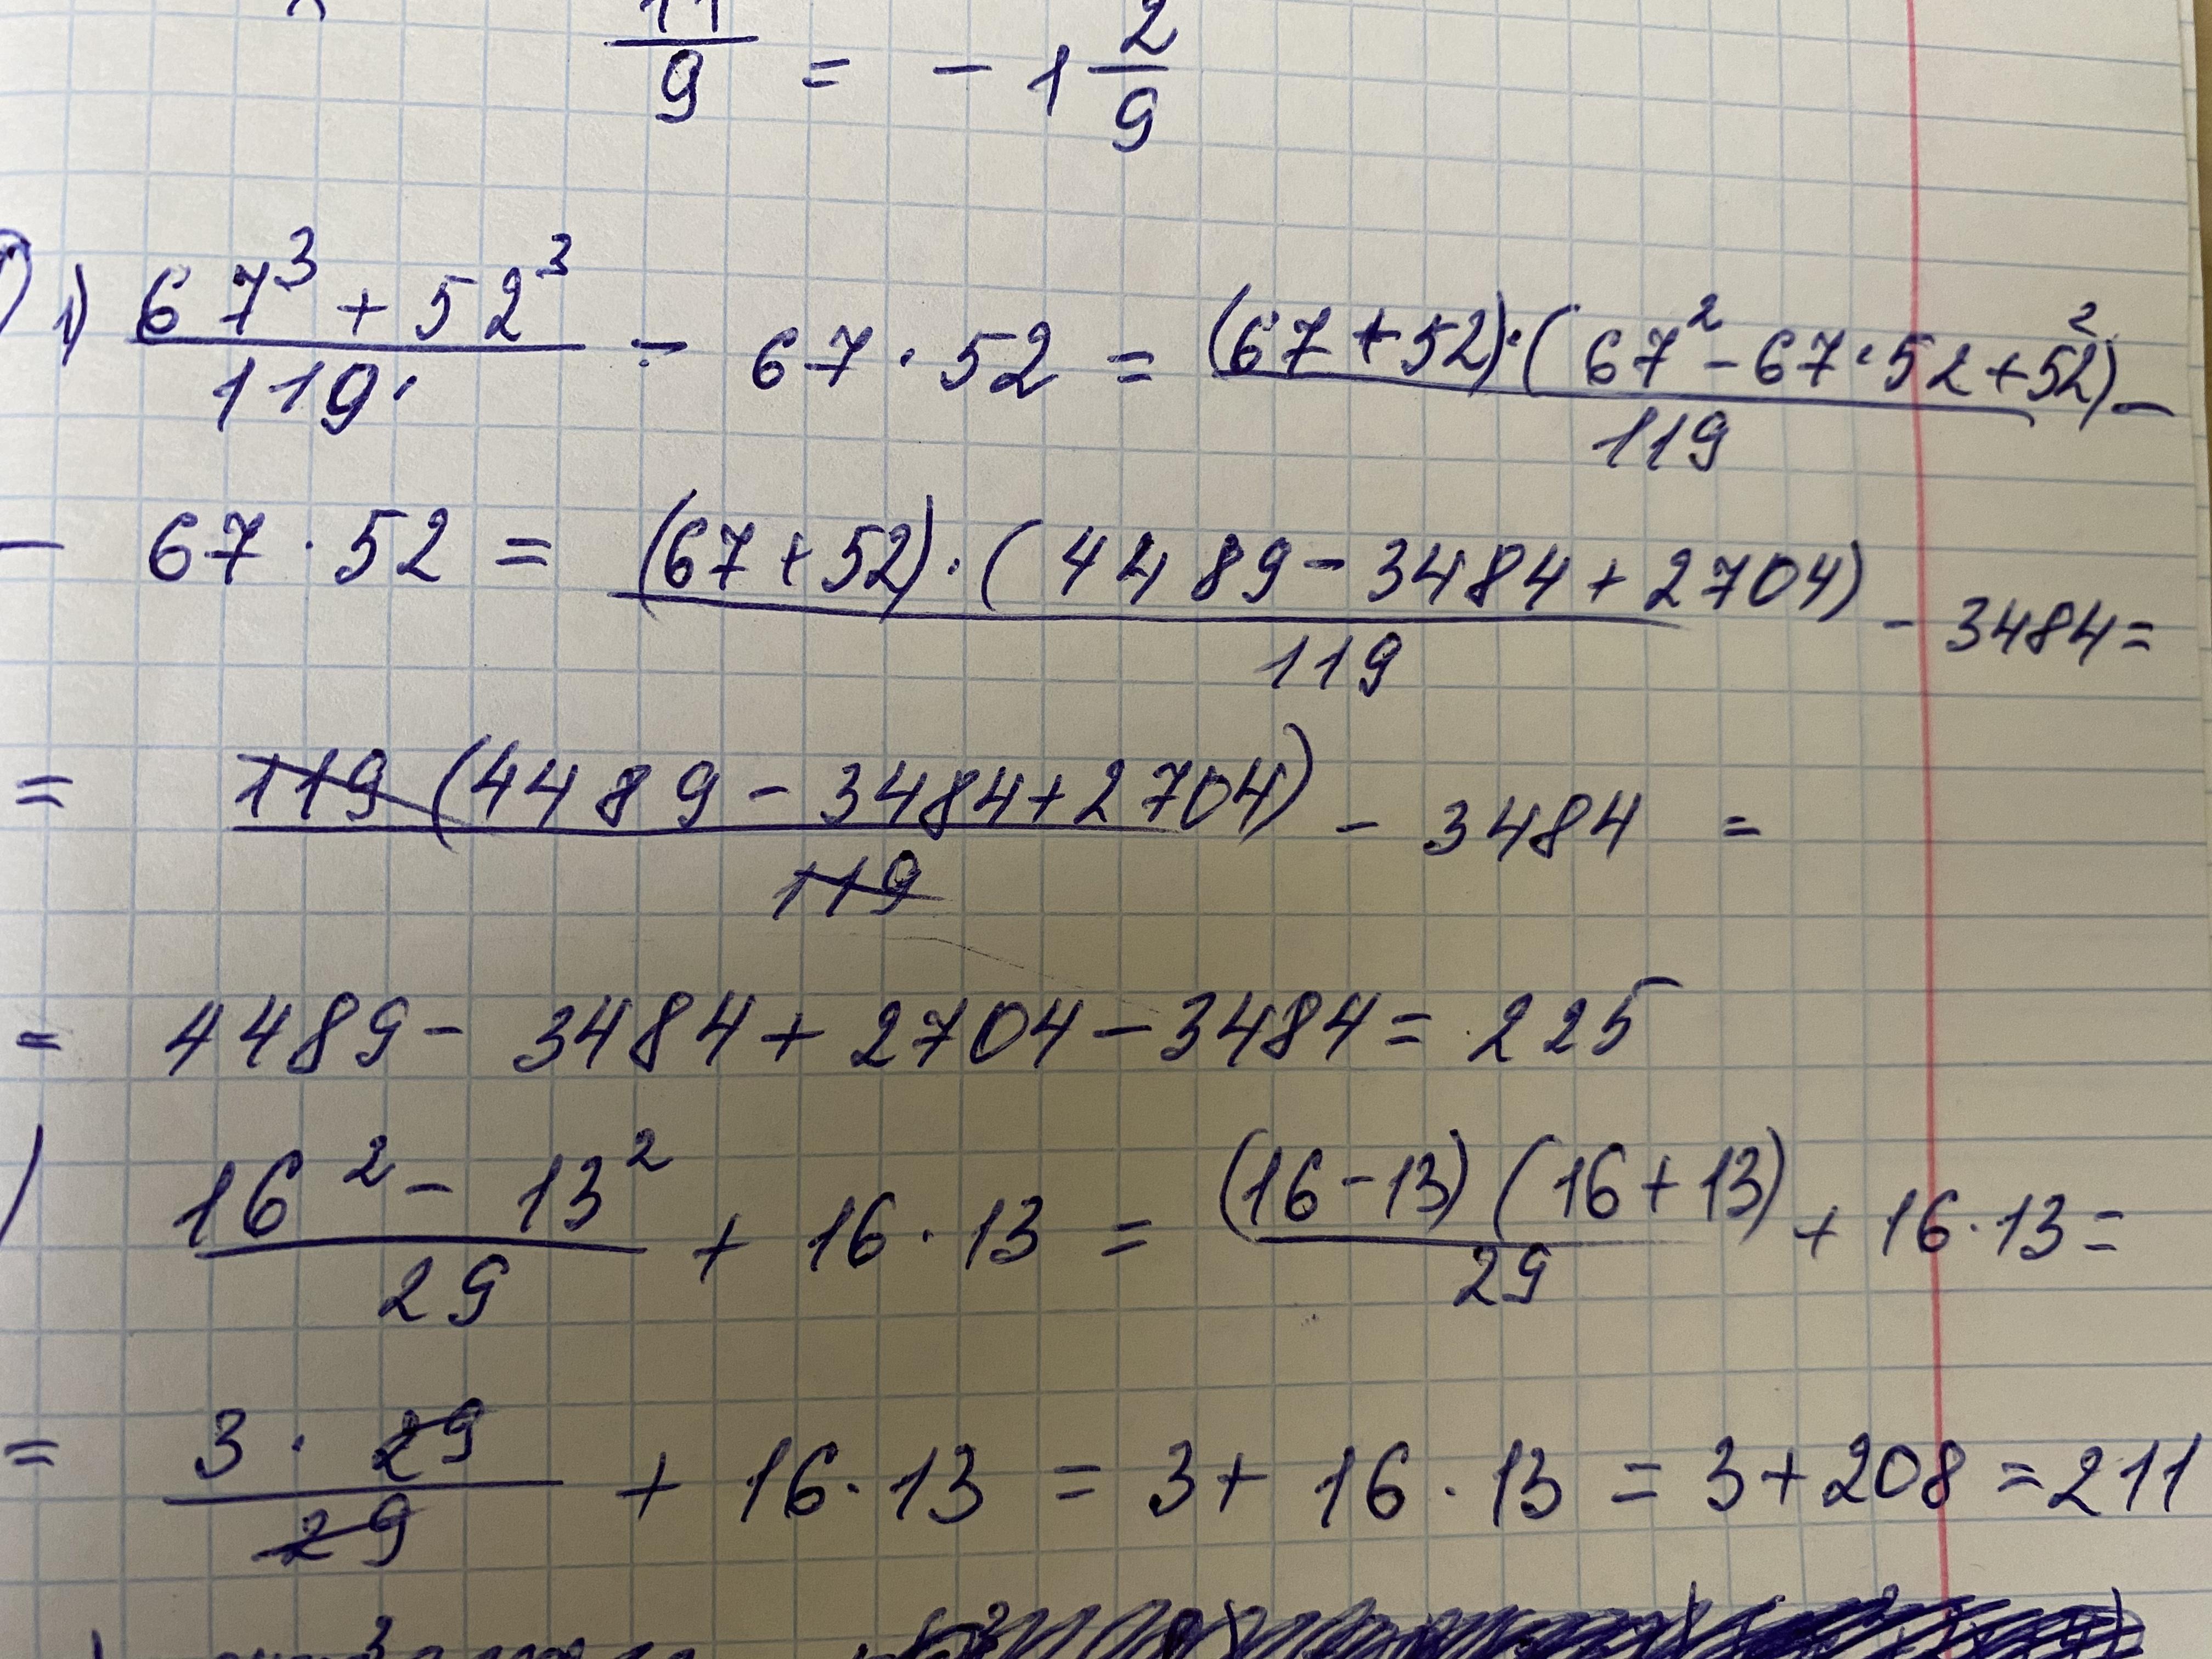 11/9 = - 1 2/9
1) (67³ + 52³)/119 - 67 · 52 = ((67 + 52) · (67² - 67 · 52 + 52²))/119 -
- 67 · 52 = ((67 + 52) · (4489 - 3484 + 2704))/119 - 3484 =
= (119 (4489 - 3484 + 2704))/119 - 3484 =
= 4489 - 3484 + 2704 - 3484 = 225
) (16² - 13²)/29 + 16 · 13 = ((16 - 13) (16 + 13))/29 + 16 · 13 =
= (3 · 29)/29 + 16 · 13 = 3 + 16 · 13 = 3 + 208 = 211